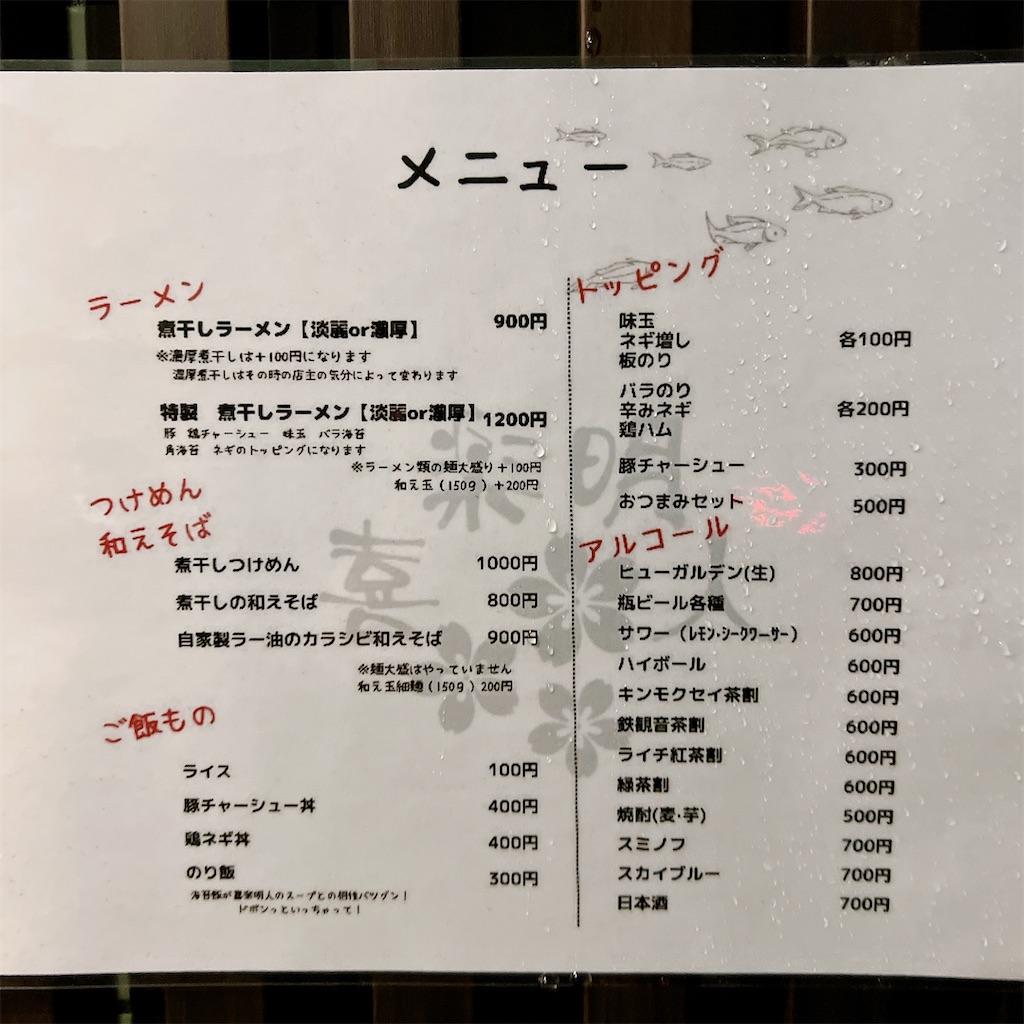 メニュー
ラーメン
煮干しラーメン【淡麗or濃厚】 900円
※濃厚煮干しは+100円になります
濃厚煮干しはその時の店主の気分によって変わります
特製 煮干しラーメン【淡麗or濃厚】 1200円
豚 鶏チャーシュー 味玉 バラ海苔
角海苔 ネギのトッピングになります
※ラーメン類の麺大盛り+100円
和え玉(150g)+200円
つけめん
和えそば
煮干しつけめん 1000円
煮干しの和えそば 800円
自家製ラー油のカラシビ和えそば 900円
※麺大盛はやっていません
和え玉細麺(150g)200円
ご飯もの
ライス 100円
豚チャーシュー丼 400円
鶏ネギ丼 400円
のり飯 300円
海苔飯が喜楽明人のスープとの相性バツグン!
ドボンっといっちゃって!
トッピング
味玉
ネギ増し 各100円
板のり
バラのり
辛みネギ 各200円
鶏ハム
豚チャーシュー 300円
おつまみセット 500円
アルコール
ヒューガルデン(生) 800円
瓶ビール各種 700円
サワー(ﾚﾓﾝ･ｼｰｸﾜｰｻｰ) 600円
ハイボール 600円
キンモクセイ茶割 600円
鉄観音茶割 600円
ライチ紅茶割 600円
緑茶割 600円
焼酎(麦・芋) 500円
スミノフ 700円
スカイブルー 700円
日本酒 700円
喜楽明人